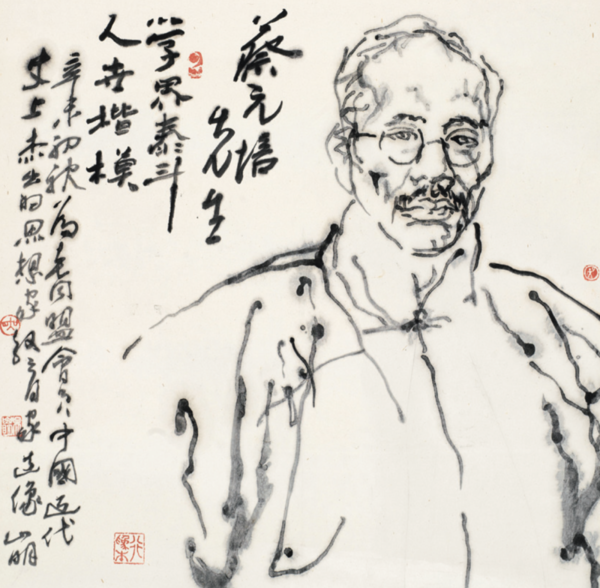 蔡元培
先生
学界泰斗
人世楷模
辛未初秋为老同盟會员中國近代
史上杰出的思想家教育家造像 山明